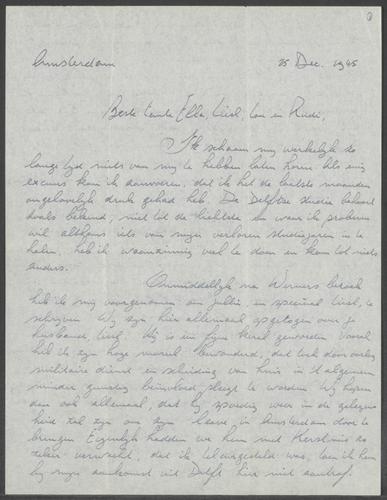 Amsterdam 25 Dec. 1945
Beste tante Ella, Liesl, Leo en Rudi,
Ik schaam mij werkelijk zo
lange tijd niets van mij te hebben laten horen. Als enig
excuus kan ik aanvoeren, dat ik het de laatste maanden
ongelooflijk druk gehad heb. De Delftse studie behoort
zoals bekend, niet tot de lichtste en waar ik proberen
wil althans iets van mijn verloren studiejaren in te
halen, heb ik waanzinnig veel te doen en kom tot niets
anders.
Onmiddellijk na Werners bezoek
heb ik mij voorgenomen om jullie, en speciaal Liesl, te
schrijven. Wij zijn hier allemaal opgetogen over je
husband, Liesl. Hij is een fijne kerel geworden. Vooral
heb ik zijn hoge moraal bewonderd, dat toch door
militaire dienst en scheiding van huis in 't algemeen
minder gunstig beïnvloed pleegt te worden. Wij hopen
dan ook allemaal, dat hij spoedig weer in de gelegen-
heid zal zijn om zijn leave in Amsterdam door te
brengen. Eigenlijk hadden we hem met Kerstmis
zeker verwacht, dat ik teleurgesteld was, toen ik hem
bij mijn aankomst uit Delft hier niet aantrof.